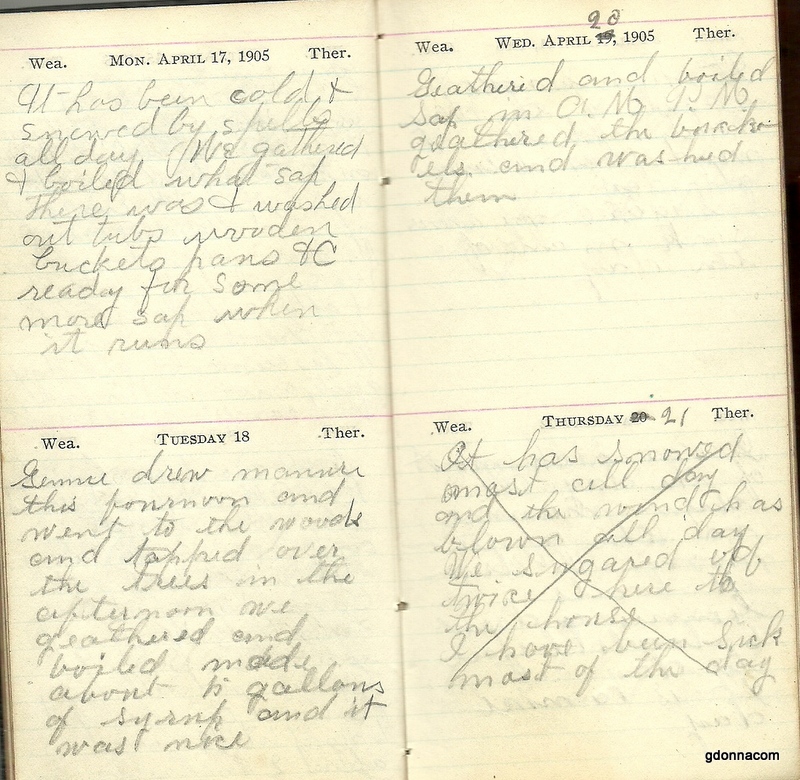 Wea. MON. APRIL 17, 1905 Ther.
It has been cold &
snowed by spells
all day We gathered
& boiled what sap
there was & washed
out tubs wooden
buckets pans &C
ready for some
more sap when
it runs
Wea. TUESDAY 18 Ther.
drew manure
this fournoon and
went to the woods
and tapped over
the trees in the
afternoon we
geathered and
boiled made
about gallons
of syrup and it
was nice
20
Wea. WED. APRIL 19, 1905 Ther.
Geathered and boiled
sap in A.M. P.M.
geathered the
and washed
them
Wea. THURSDAY 20 21 Ther.
It has snowed
most all day
and the wind has
blown all day
We sugared off
twice here to
the house
I have been sick
most of the day
gdonnacom